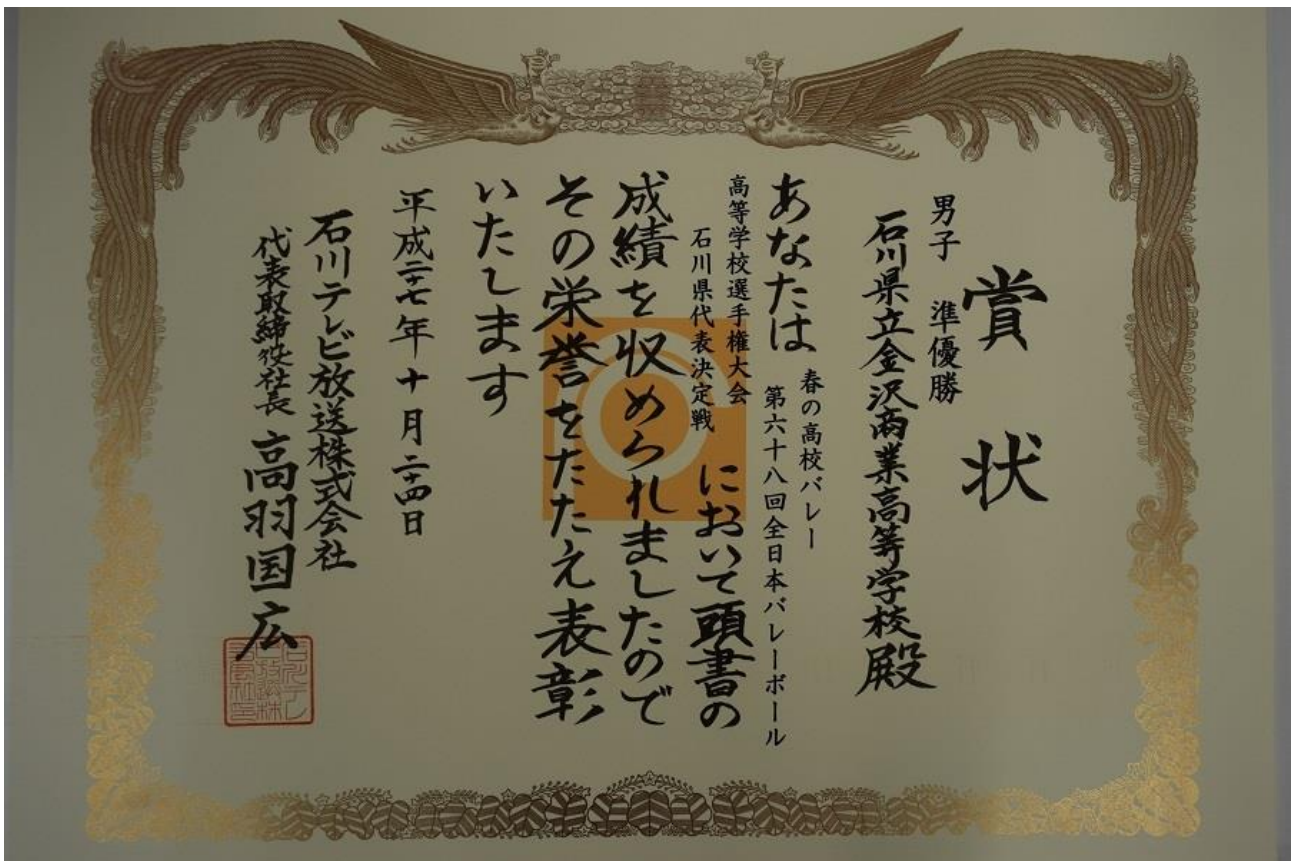 賞状
男子 準優勝
石川県立金沢商業高等学校殿
あなたは 春の高校バレー
第六十八回全日本バレーボール
高等学校選手権大会
石川県代表決定戦
において頭書の
成績を収められましたので
その栄誉をたたえ表彰
いたします
平成二十七年十月二十四日
石川テレビ放送株式会社
代表取締役社長 高羽国広